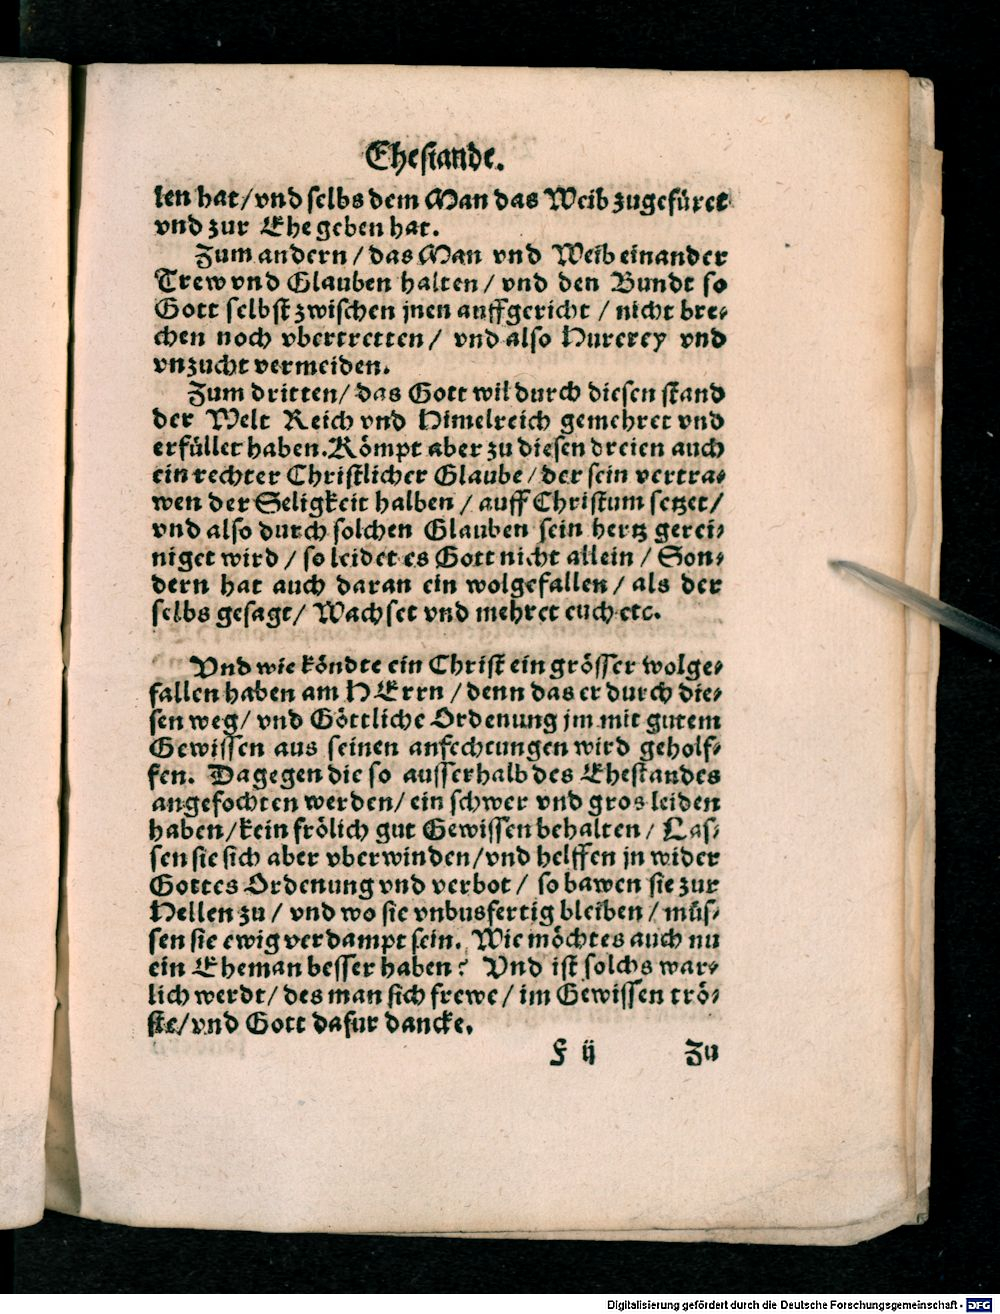 Ehestande.
len hat/vnd selbs dem Man das Weib zugefüret
vnd zur Ehe geben hat.
Zum andern/das Man vnd Weib einander
Trew vnd Glauben halten/ vnd den Bundt so
Gott selbst zwischen jnen auffgericht / nicht bre⸗
chen noch vbertretten/ vnd also Hurerey vnd
vnzucht vermeiden.
Zum dritten/ das Gott wil durch diesen stand
der Welt Reich vnd Himelreich gemehret vnd
erfüllet haben. Kömpt aber zu diesen dreien auch
ein rechter Christlicher Glaube/ der sein vertra⸗
wen der Seligkeit halben / auff Christum setzet/
vnd also durch solchen Glauben sein hertz gerei⸗
niget wird / so leidet es Gott nicht allein / Son⸗
dern hat auch daran ein wolgefallen/ als der
selbs gesagt/ Wachset vnd mehret euch etc.
Vnd wie köndte ein Christ ein grösser wolge⸗
fallen haben am HErrn / denn das er durch die⸗
sen weg/ vnd Göttliche Ordenung jm mit gutem
Gewissen aus seinen anfechtungen wird geholf⸗
fen. Dagegen die so ausserhalb des Ehestandes
angefochten werden/ ein schwer vnd gros leiden
haben/kein frölich gut Gewissen behalten/ Las⸗
sen sie sich aber vberwinden/vnd helffen jn wider
Gottes Ordenung vnd verbot/ so bawen sie zur
Hellen zu/ vnd wo sie vnbusfertig bleiben/ müs⸗
sen sie ewig verdampt sein. Wie möchtes auch nu
ein Eheman besser haben? Vnd ist solchs war⸗
lich werdt/ des man sich frewe/ im Gewissen trö⸗
ste/vnd Gott dafur dancke.
F ij Zu
Digitalisierung gefördert durch die Deutsche Forschungsgemeinschaft - DFG